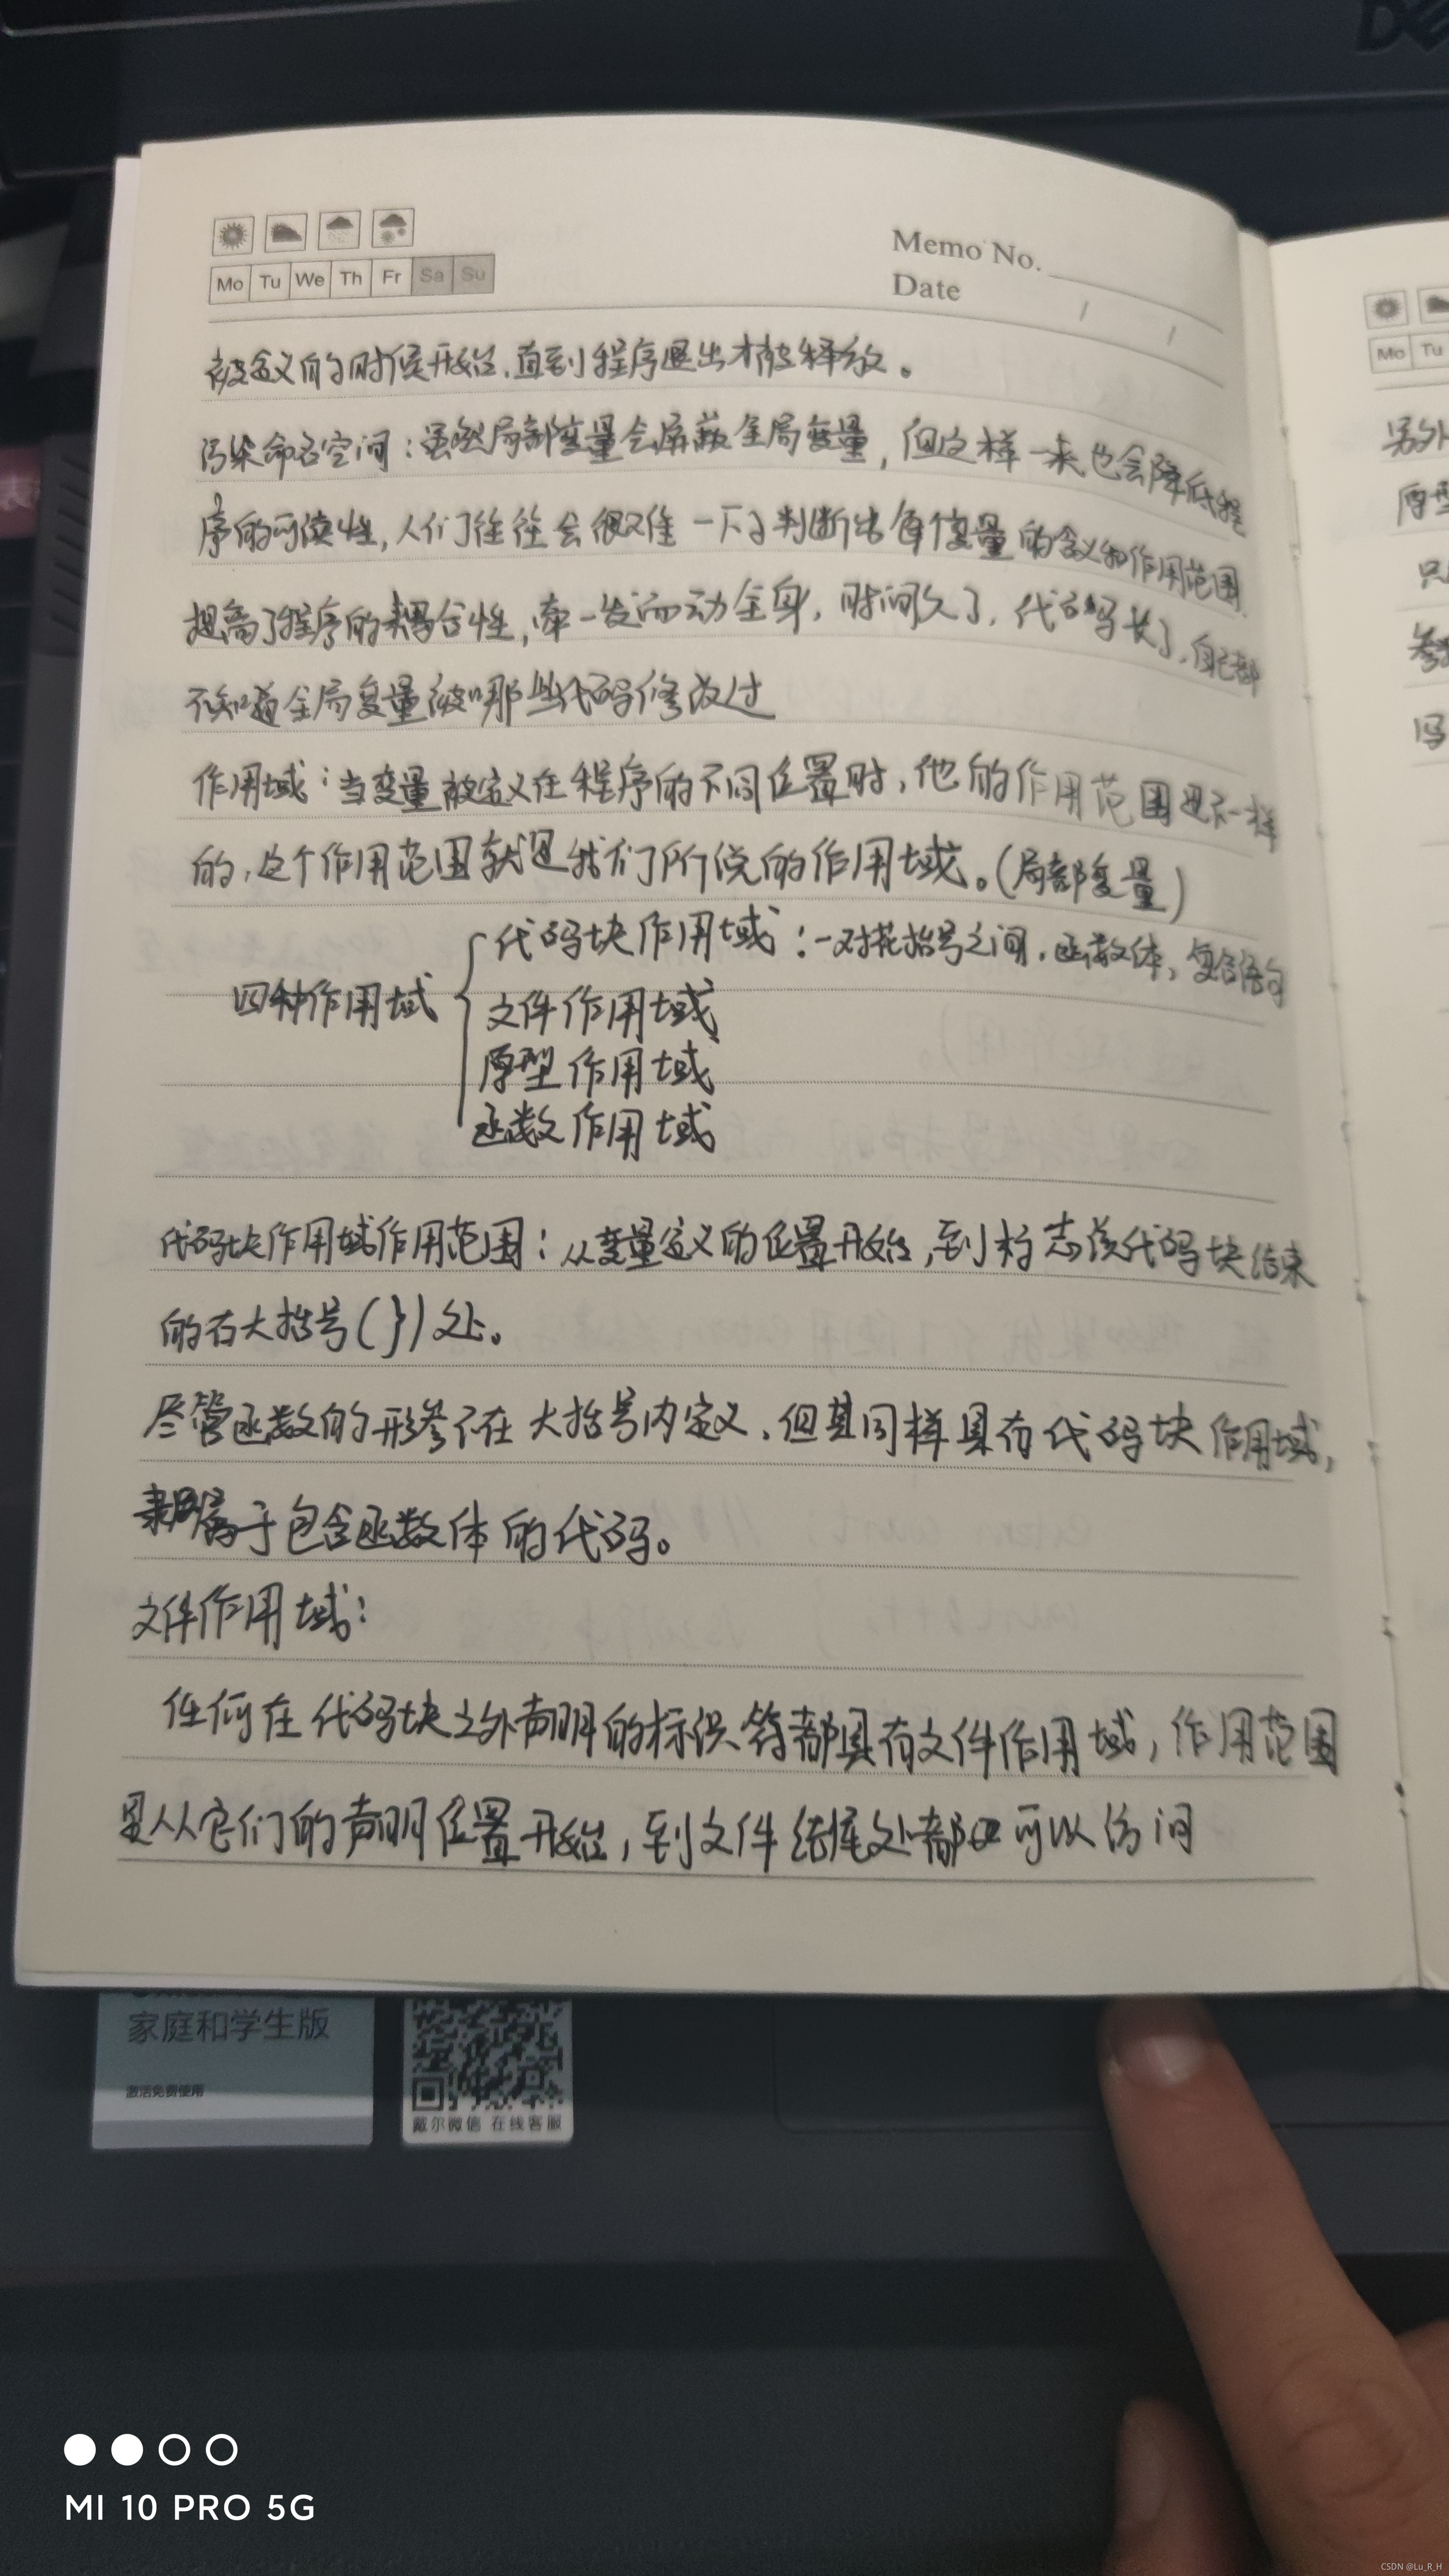 DE
Memo No.
Date / /
Mo Tu We Th Fr Sa Su
Mo Tu
被定义的时候开始,直到程序退出才被释放。
污染命名空间:虽然局部变量会屏蔽全局变量,但这样一来也会降低程
序的可读性,人们往往会很难一下子判断出每个变量的含义和作用范围
提高了程序的耦合性,牵一发而动全身,时间久了,代码长了,自己都
不知道全局变量被哪些代码修改过
作用域:当变量被定义在程序的不同位置时,他的作用范围是不一样
的,这个作用范围就是我们所说的作用域。(局部变量)
四种作用域
代码块作用域:一对花括号之间,函数体,复合语句
文件作用域
原型作用域
函数作用域
代码块作用域作用范围:从变量定义的位置开始,到标志该代码块结束
的右大括号(})处。
尽管函数的形参不在大括号内定义,但其同样具有代码块作用域,
隶属于包含函数体的代码。
文件作用域:
任何在代码块之外声明的标识符都具有文件作用域,作用范围
是从它们的声明位置开始,到文件结尾处都 可以访问
另外
原型
只
参
吗
家庭和学生版
激活免费使用
戴尔微信 在线客服
MI 10 PRO 5G
CSDN @Lu_R_H